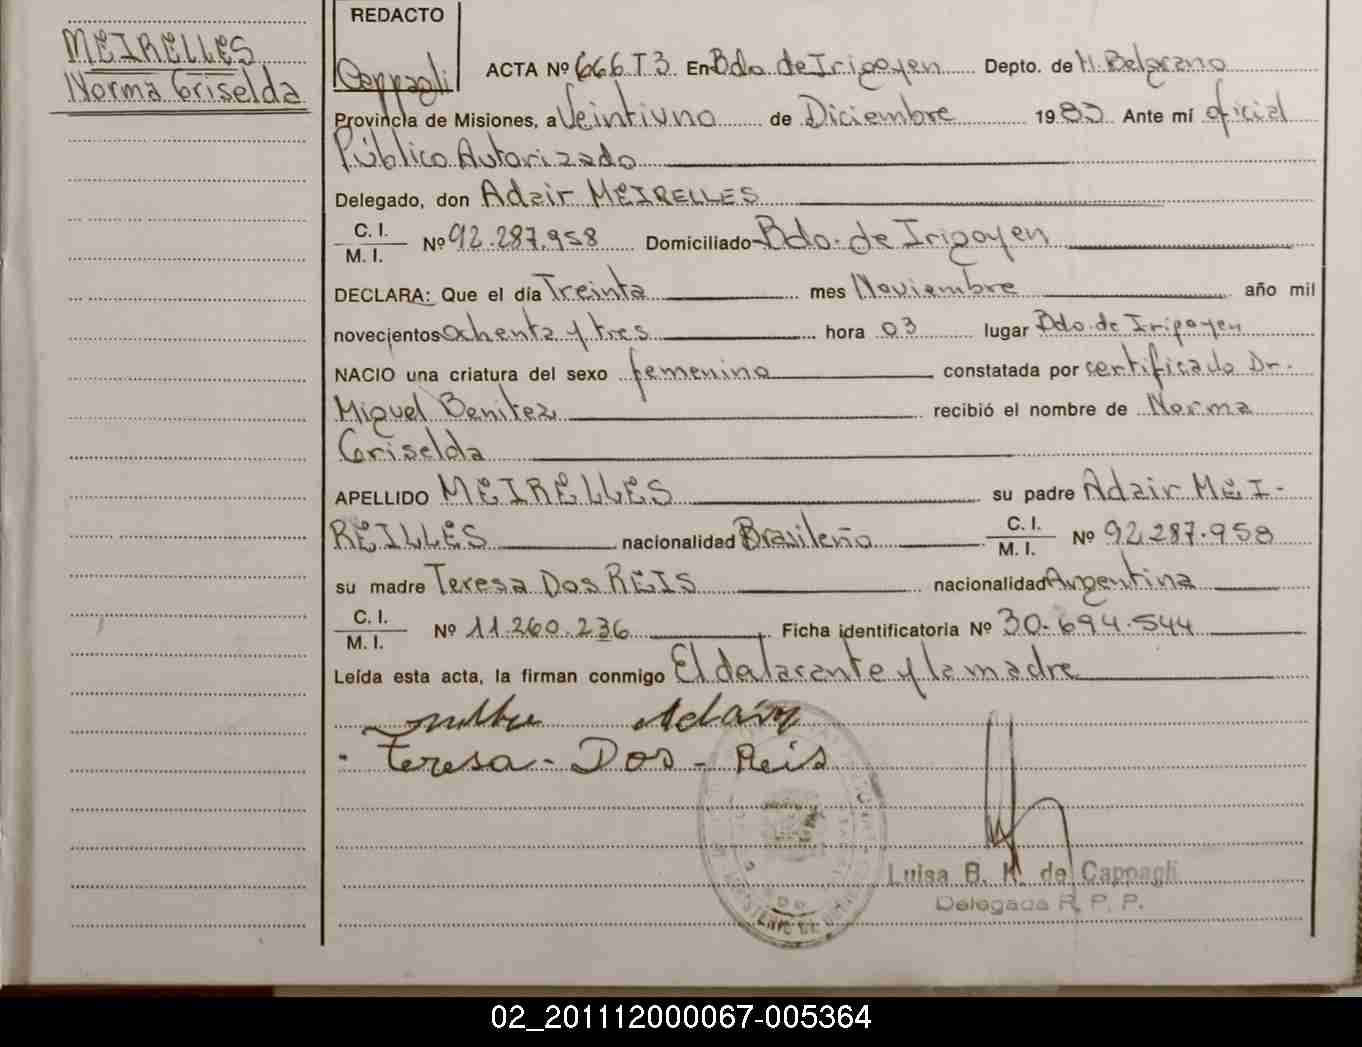 MEIRELLES
Norma Griselda
REDACTO
Cappagli
ACTA Nº 666 T3 En Bdo. de Irigoyen Depto. de M. Belgrano
Provincia de Misiones, a Veintiuno de Diciembre 1983 Ante mí oficial
Público Autorizado
Delegado, don Adair MEIRELLES
C. I.
M. I.
Nº 92.287.958 Domiciliado Bdo. de Irigoyen
DECLARA: Que el día Treinta mes Noviembre año mil
novecientos ochenta y tres hora 03 lugar Bdo. de Irigoyen
NACIO una criatura del sexo femenino constatada por certificado Dr.
Miguel Benitez recibió el nombre de Norma
Griselda
APELLIDO MEIRELLES su padre Adair MEI-
REILLES nacionalidad Brasileño C. I.
M. I. Nº 92.287.958
su madre Teresa Dos REIS nacionalidad Argentina
C. I.
M. I.
Nº 11.260.236 Ficha identificatoria Nº 30.694.544
Leída esta acta, la firman conmigo El delacante y la madre
Adair
Teresa - Dos - Reis
Luisa B. K. de Cappagli
Delegada R. P. P.
02_201112000067-005364